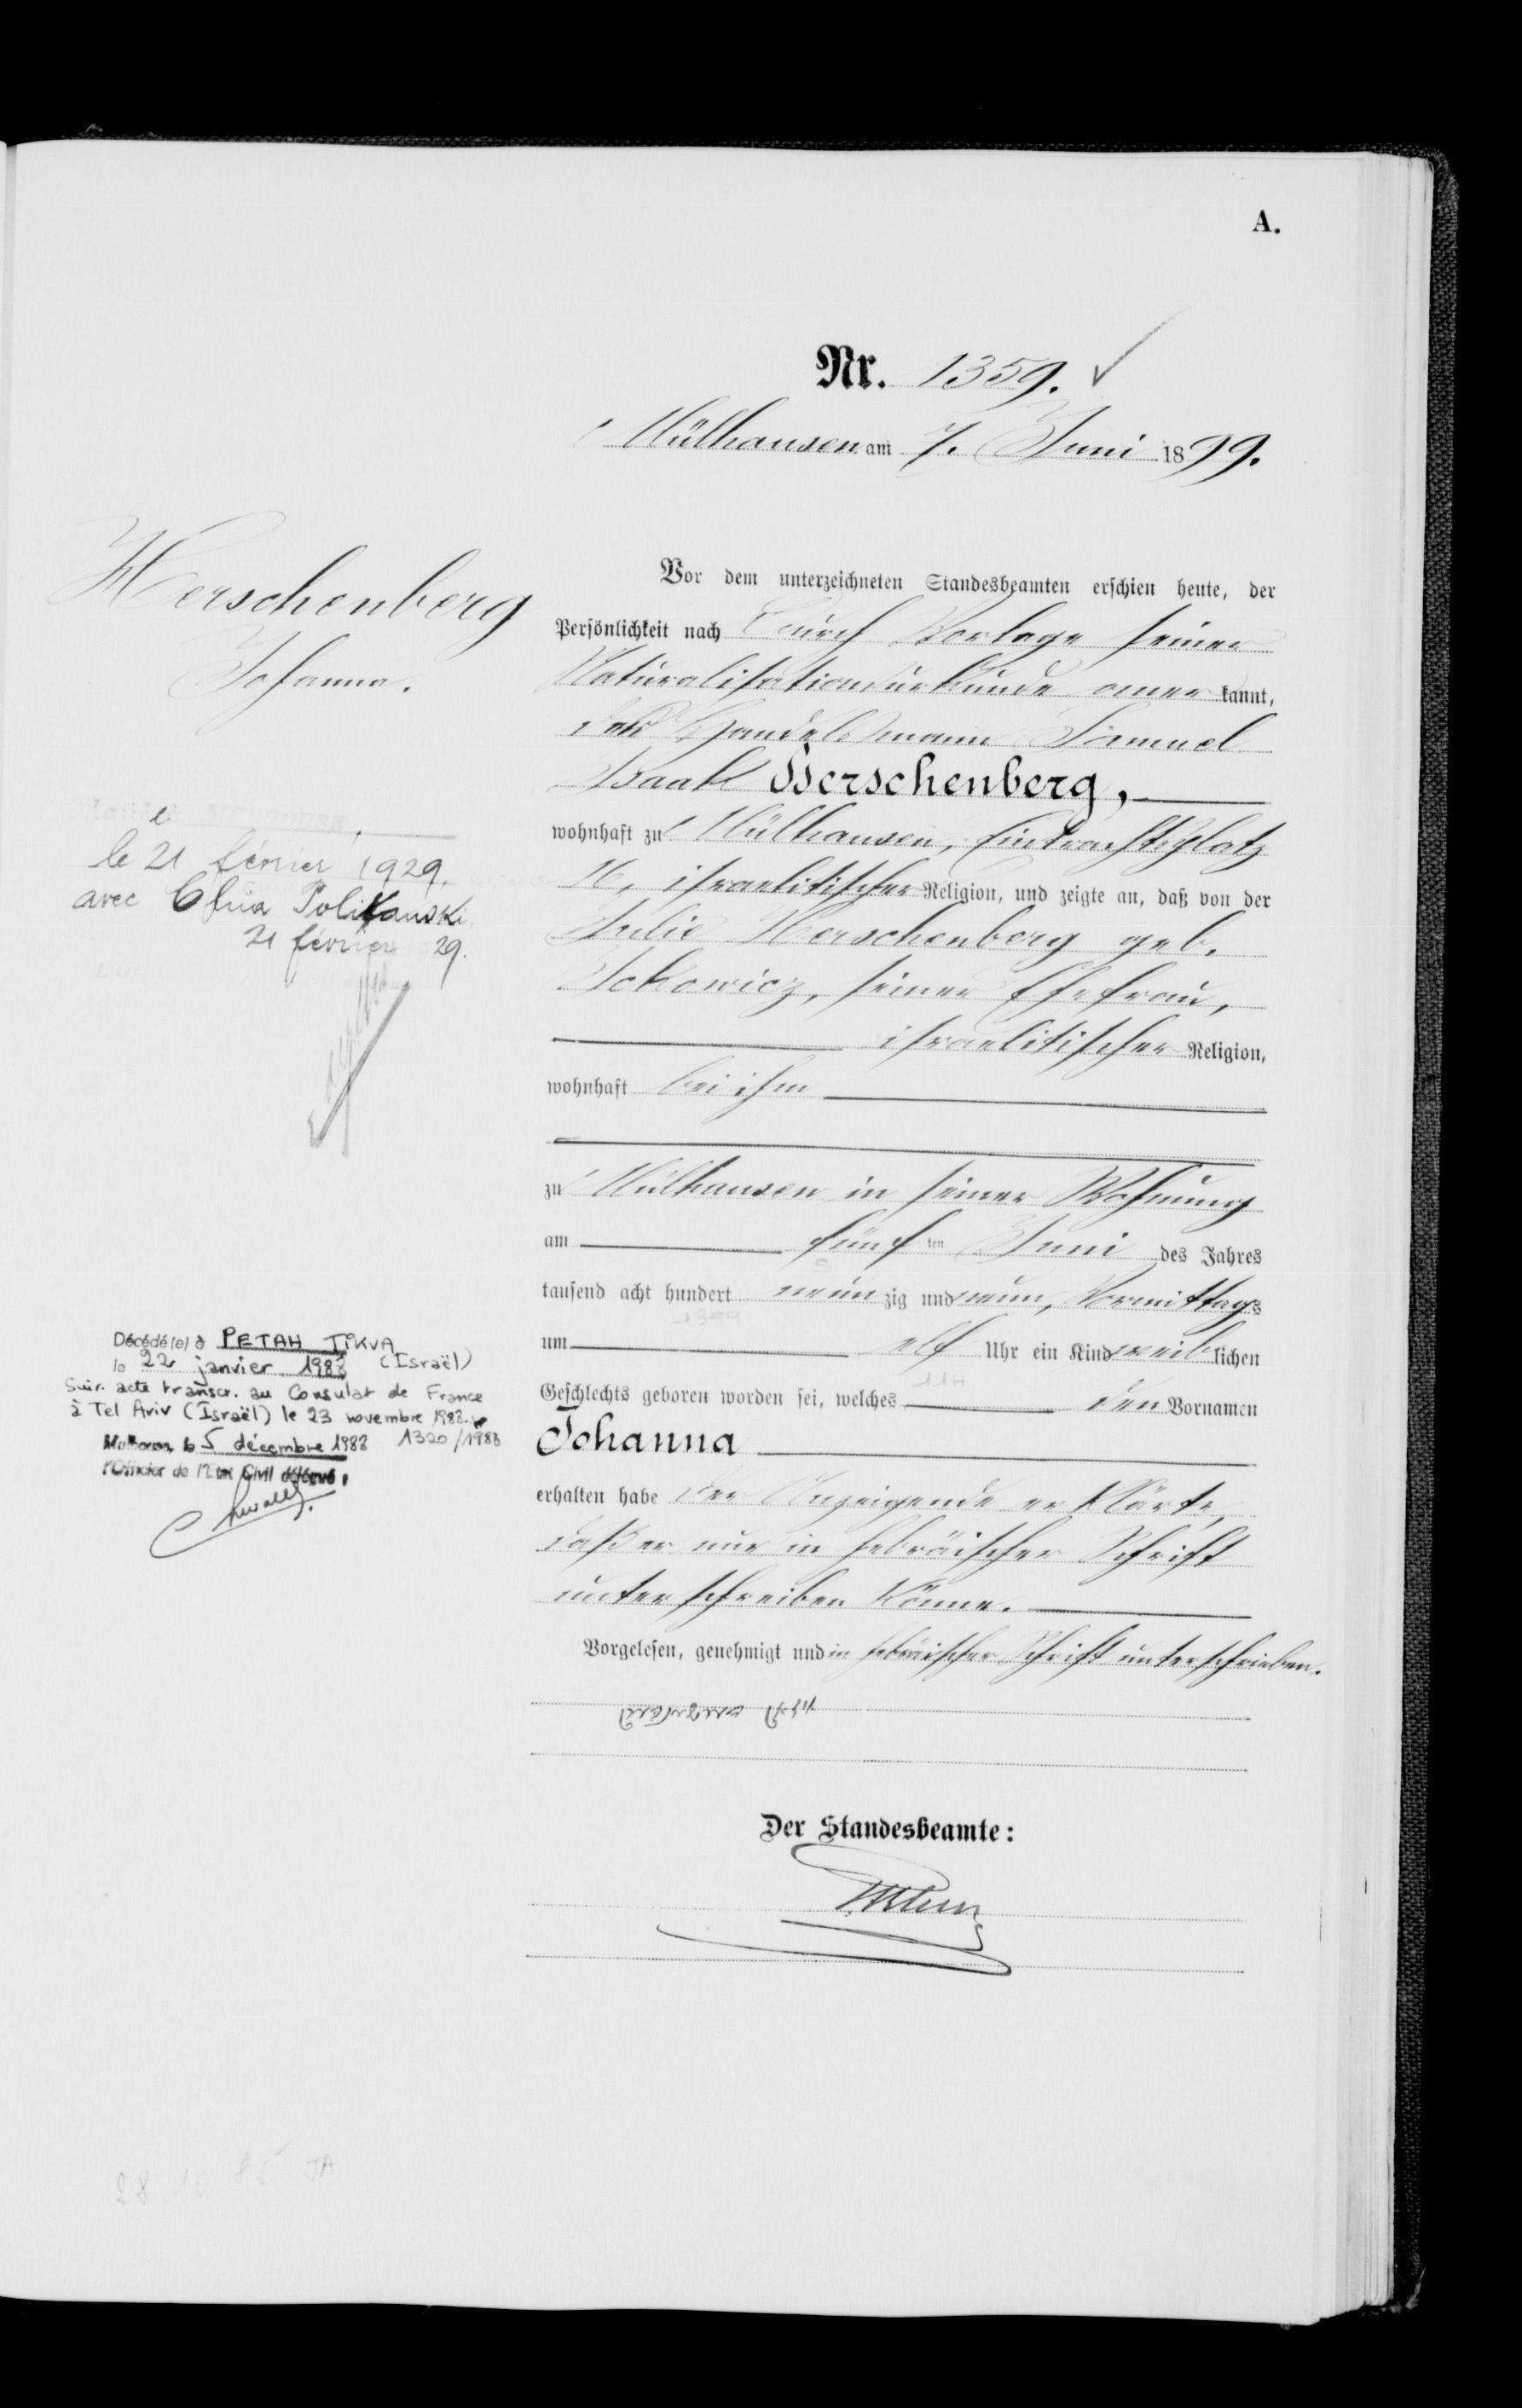 A.
Nr. 1359.
Mülhausen am 7. Juni 1899.
Herschenberg
Johanna.
Vor dem unterzeichneten Standesbeamten erschien heute, der
Persönlichkeit nach durch Vorlage seiner
Naturalisationsurkunde anerkannt,
der Handelsmann Samuel
Isaak Herschenberg,
wohnhaft zu Mülhausen, Eintrachtsplatz
16, israelitischer Religion, und zeigte an, daß von der
Julie Herschenberg geb.
Ickowicz, seiner Ehefrau,
israelitischer Religion,
wohnhaft bei ihm
zu Mülhausen in seiner Wohnung
am fünften Juni des Jahres
tausend acht hundert neunzig und neun, Vormittags
um elf Uhr ein Kind weiblichen
Geschlechts geboren worden sei, welches den Vornamen
Johanna
erhalten habe der Anzeigende erklärte,
daß er nur in hebräischer Schrift
unterschreiben könne.
Vorgelesen, genehmigt und in hebräischer Schrift unterschrieben.
Der Standesbeamte:
le 21 février 1929.
avec Polikanski
21 février 29.
Décédé(e) à PETAH TIKVA
le 22 janvier 1988 (Israël)
Suiv. acte transcr. au Consulat de France
à Tel Aviv (Israël) le 23 novembre 1988.
Mulhouse, le 5 décembre 1988 1320/1988
l'Officier de l'Etat Civil délégué,